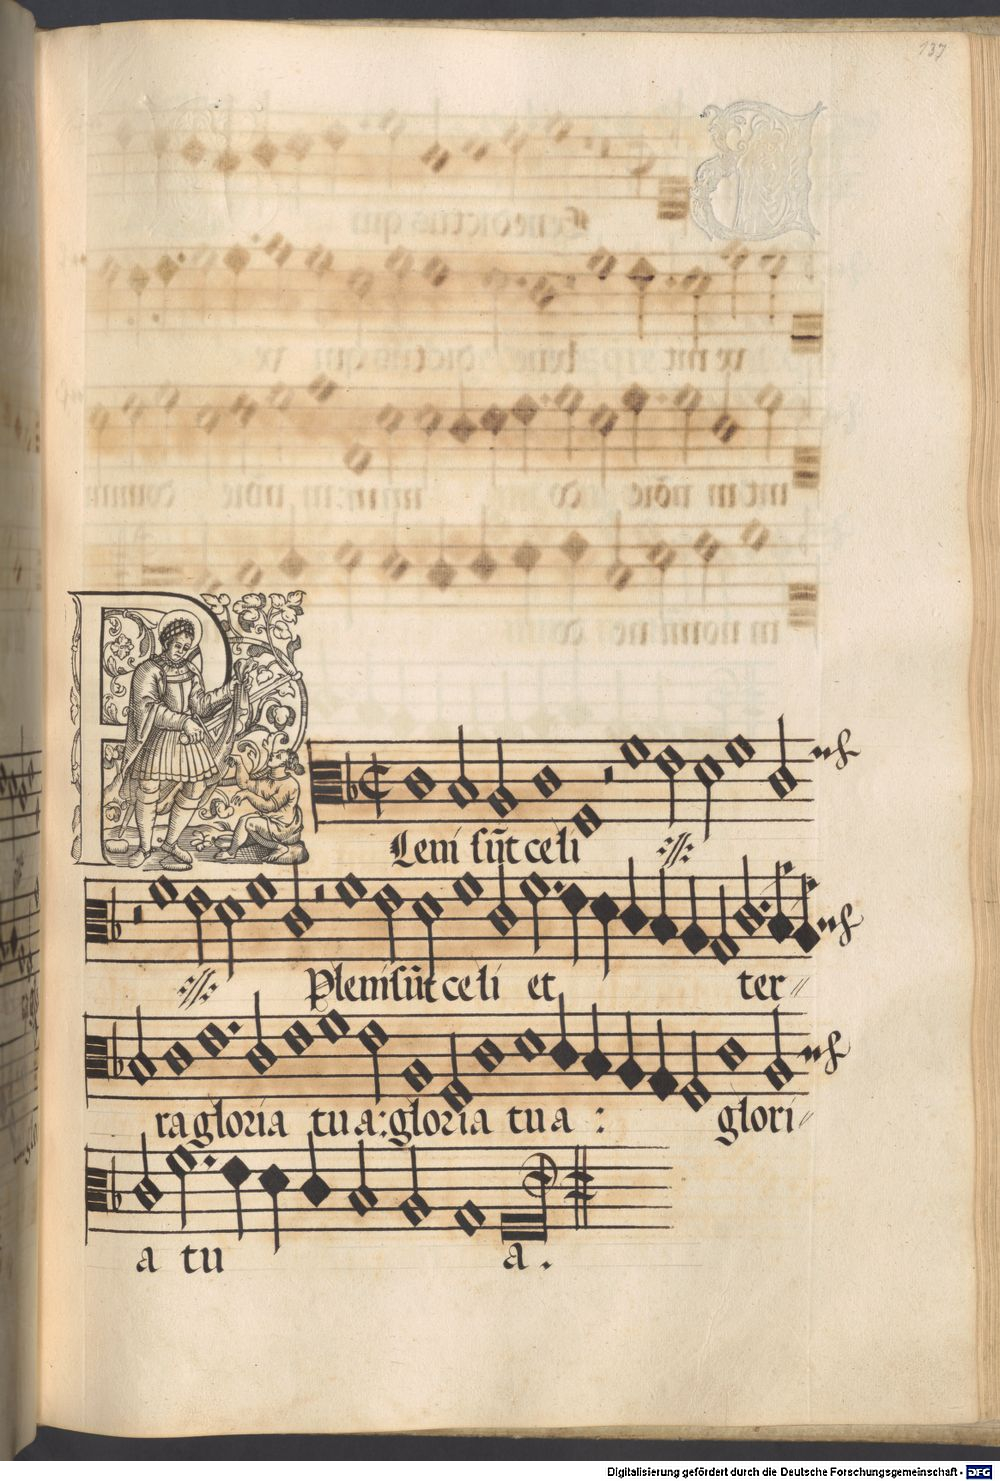 137
Pleni sūt celi
Pleni sūt celi et ter⸗
ra gloria tua: gloria tua : glori⸗
a tu a .
Digitalisierung gefördert durch die Deutsche Forschungsgemeinschaft - DFG